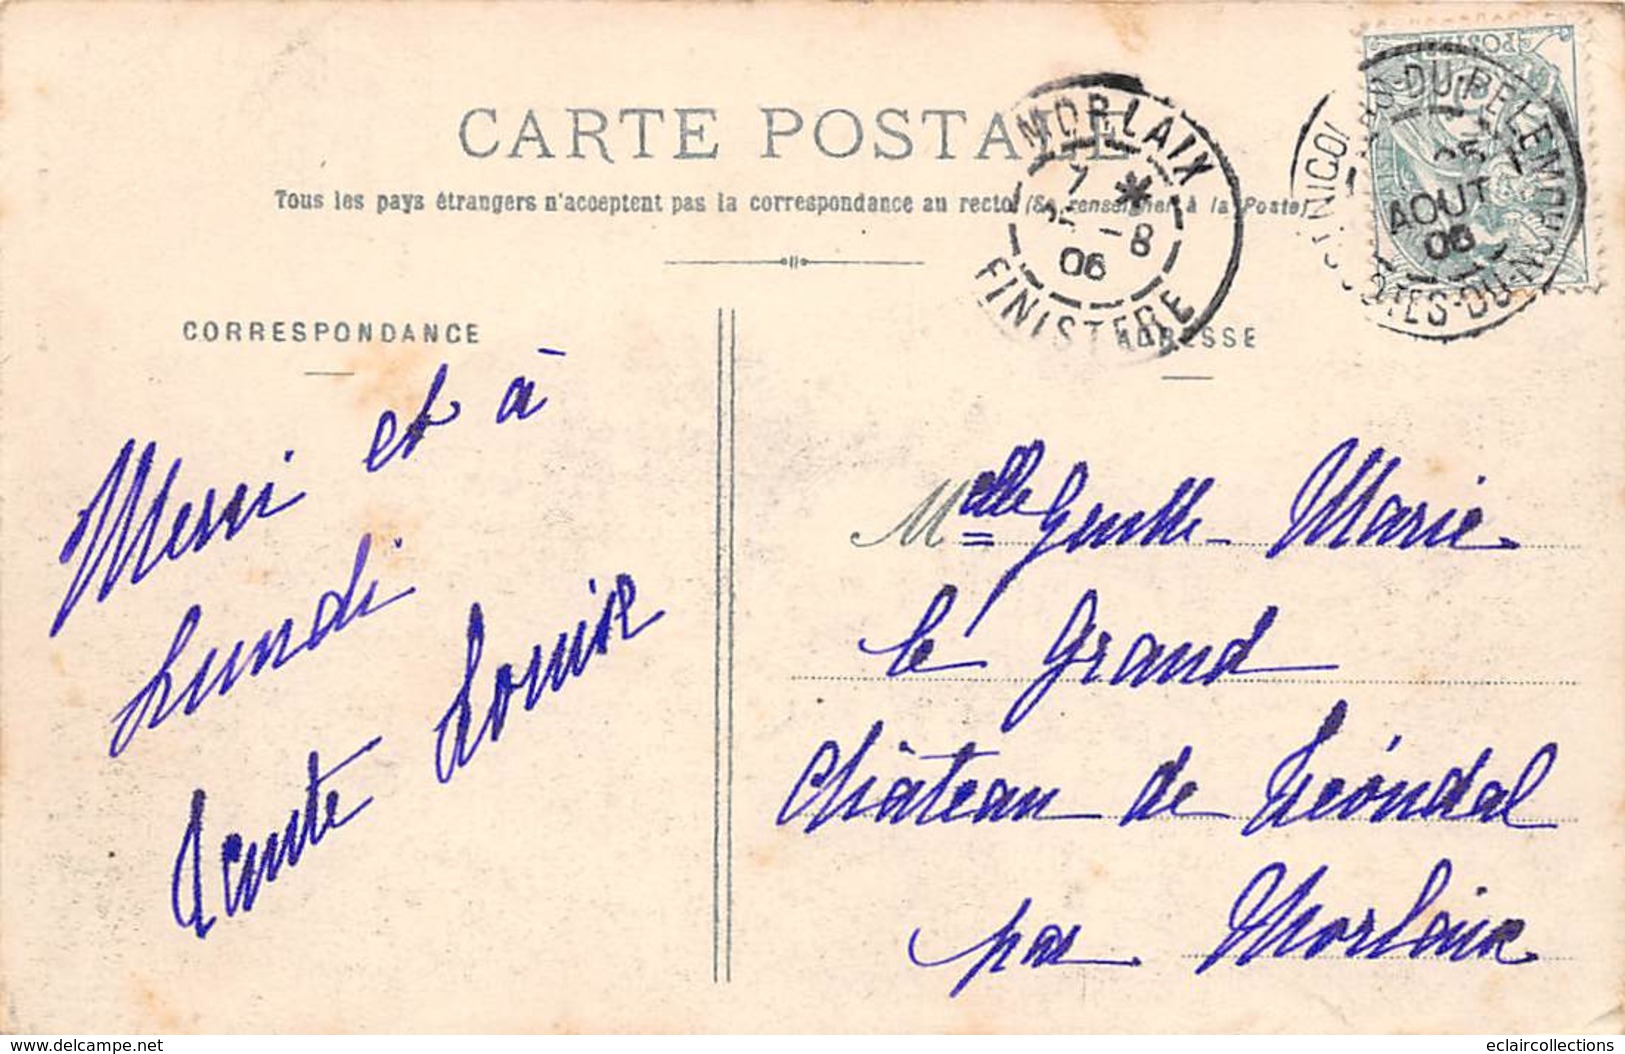 CARTE POSTALE
Tous les pays étrangers n'acceptent pas la correspondance au recto (Se renseigner à la Poste)
MORLAIX
7 * 
25 -8
06
FINISTERE
ST NICOLAS-DU-PELEM
25
AOUT
06
COTES-DU-NORD
POSTES
CORRESPONDANCE
ADRESSE
Merci et à
Lundi
Tante Louise
Melle Marie
le Grand
Château de
par Morlaix
delcampe.net
eclaircollections